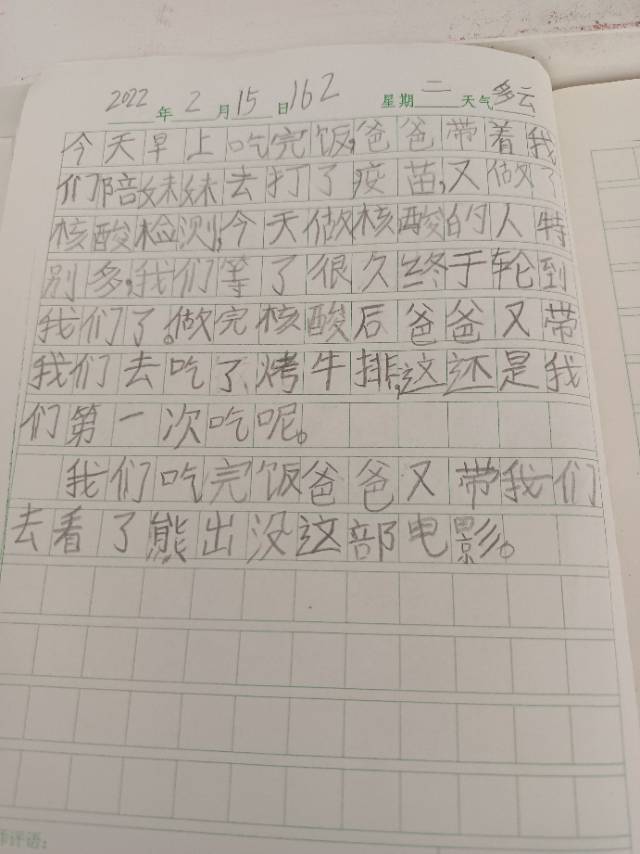 2022年2月15日162 星期二天气多云
今天早上吃完饭,爸爸带着我
们陪妹妹去打了疫苗,又做了
核酸检测,今天做核酸的人特
别多,我们等了很久终于轮到
我们了。做完核酸后爸爸又带
我们去吃了烤牛排,这还是我
们第一次吃呢。
我们吃完饭爸爸又带我们
去看了熊出没这部电影。
评语: